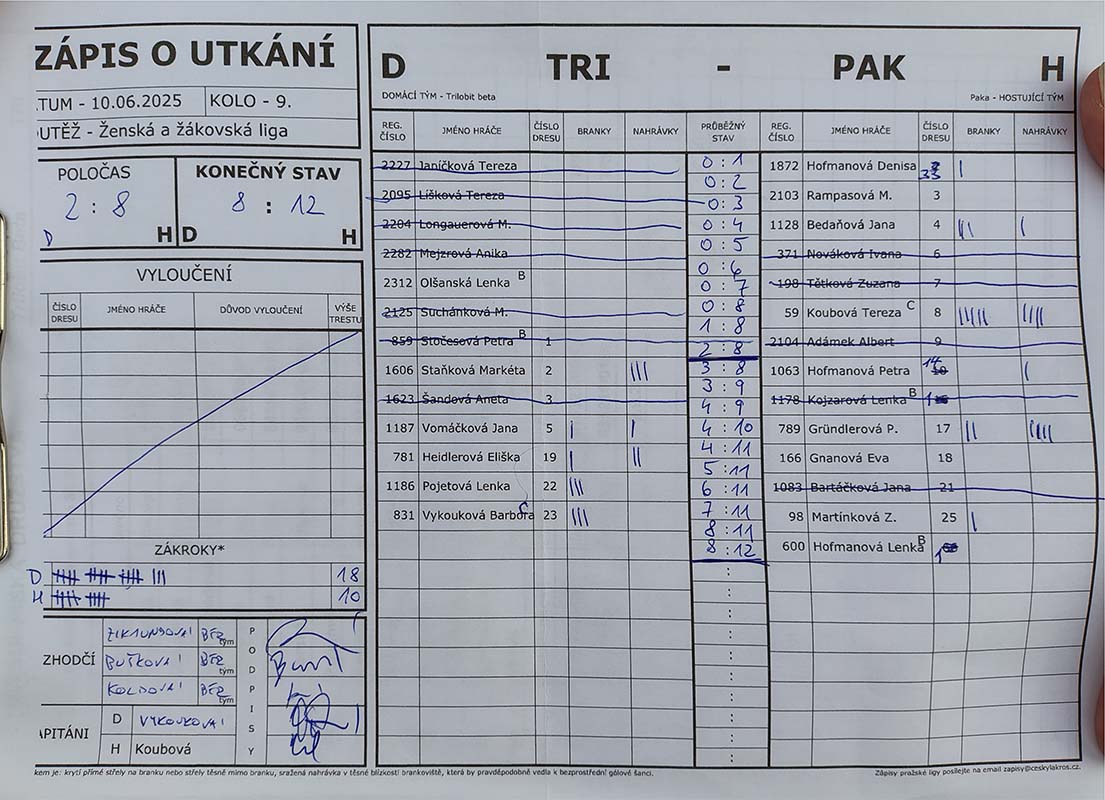 ZÁPIS O UTKÁNÍ
ATUM - 10.06.2025 KOLO - 9.
OUTĚŽ - Ženská a žákovská liga
POLOČAS KONEČNÝ STAV
2 : 8 8 : 12
D H D H
VYLOUČENÍ
ČÍSLO DRESU JMÉNO HRÁČE DŮVOD VYLOUČENÍ VÝŠE TRESTU
ZÁKROKY*
D 18
H 10
ZHODČÍ
ZIKMUNDOVÁ BEZ tým
BUŠKOVÁ BEZ tým
KOLDOVÁ BEZ tým
PODPISY
APITÁNI
D VYKOUKOVÁ
H Koubová
D TRI - PAK H
DOMÁCÍ TÝM - Trilobit beta Paka - HOSTUJÍCÍ TÝM
REG. ČÍSLO JMÉNO HRÁČE ČÍSLO DRESU BRANKY NAHRÁVKY PRŮBĚŽNÝ STAV REG. ČÍSLO JMÉNO HRÁČE ČÍSLO DRESU BRANKY NAHRÁVKY
2227 Janíčková Tereza
2095 Líšková Tereza
2204 Longauerová M.
2282 Mejzrová Anika
2312 Olšanská Lenka B
2125 Suchánková M.
859 Stočesová Petra B 1
1606 Staňková Markéta 2 |||
1623 Šandová Aneta 3
1187 Vomáčková Jana 5 | |
781 Heidlerová Eliška 19 | ||
1186 Pojetová Lenka 22 |||
831 Vykouková Barbora C 23 |||
0 : 1
0 : 2
0 : 3
0 : 4
0 : 5
0 : 6
0 : 7
0 : 8
1 : 8
2 : 8
3 : 8
3 : 9
4 : 9
4 : 10
4 : 11
5 : 11
6 : 11
7 : 11
8 : 11
8 : 12
1872 Hofmanová Denisa 33 |
2103 Rampasová M. 3
1128 Bedaňová Jana 4 ||| |
371 Nováková Ivana 6
198 Tětková Zuzana 7
59 Koubová Tereza C 8 ||||| ||||
2104 Adámek Albert 9
1063 Hofmanová Petra 14 |
1178 Kojzarová Lenka B
789 Gründlerová P. 17 || ||||
166 Gnanová Eva 18
1083 Bartáčková Jana 21
98 Martínková Z. 25 |
600 Hofmanová Lenka B 1
kem je: krytí přímé střely na branku nebo střely těsně mimo branku, sražená nahrávka v těsné blízkosti brankoviště, která by pravděpodobně vedla k bezprostřední gólové šanci.
Zápisy pražské ligy posílejte na email zapisy@ceskylakros.cz.